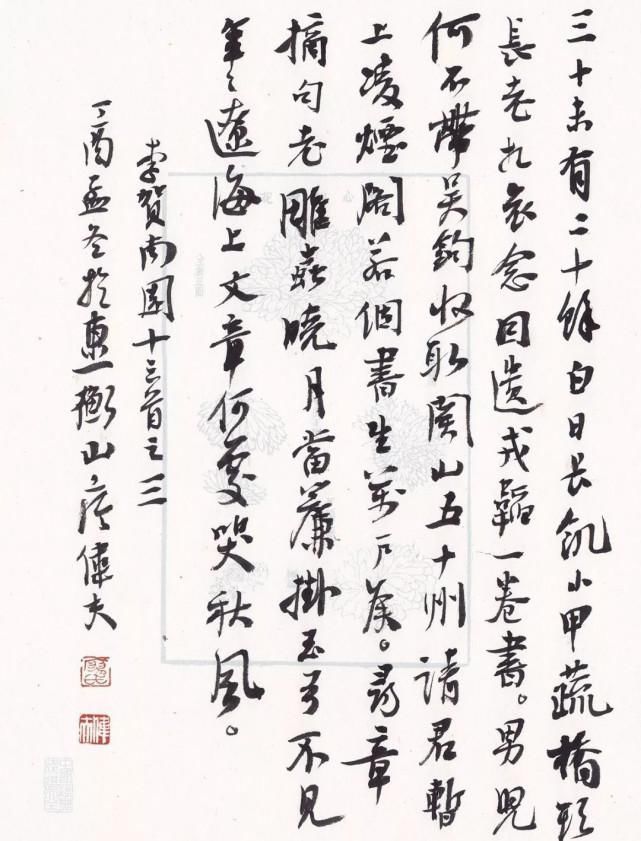 三十未有二十餘白日長飢小甲蔬橋頭
長老相哀念因遺戎韜一卷書。男兒
何不帶吳鉤收取關山五十州請君暫
上凌煙閣若個書生萬戶侯。尋章
摘句老雕蟲曉月當簾掛玉弓不見
年々遼海上文章何處哭秋風。
李賀南園十三首之三
丁酉孟冬於衡山偉夫